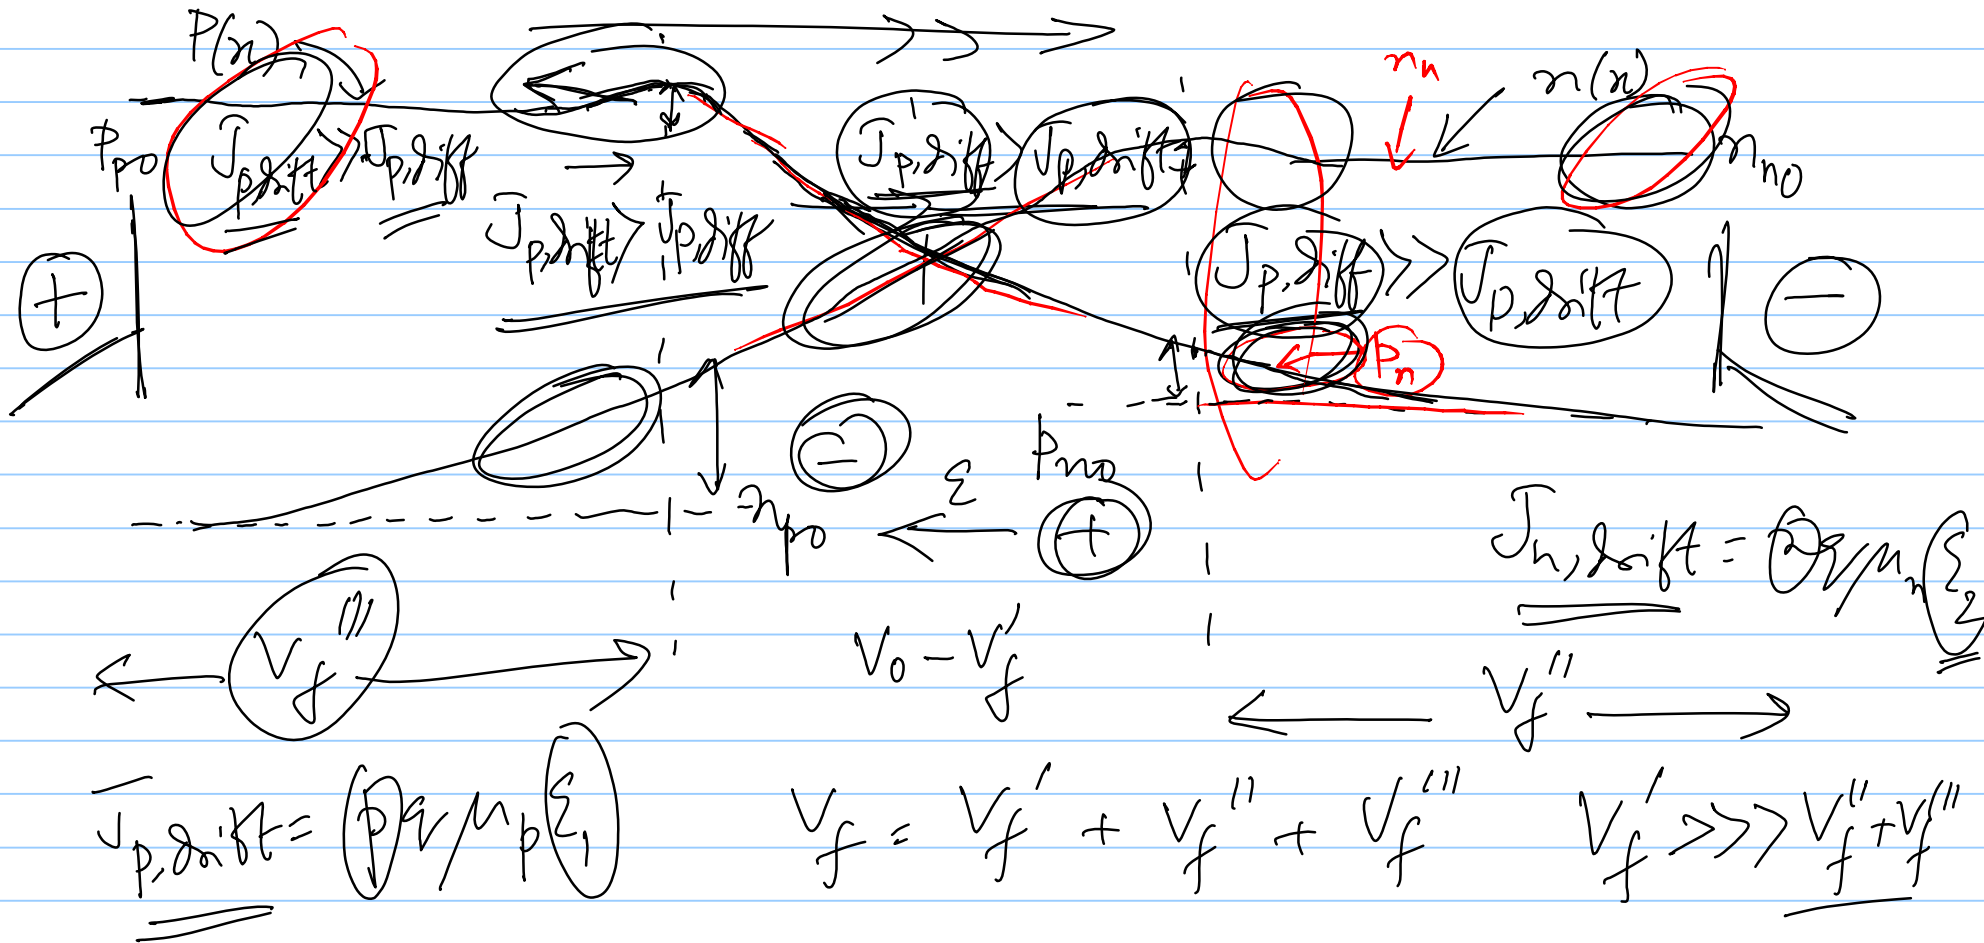 P(x)
n_n
n(x)
P_p0
J_p,drift >> J_p,diff
J_p,diff > J_p,drift
n_n0
J_p,drift > J_p,diff
J_p,diff >> J_p,drift
+
+
−
P_n
−
P_n0
n_p0
ε
+
J_n,drift = n q μ_n ε_2
V_f'''
V_0 − V_f'
V_f''
J_p,drift = p q μ_p ε_1
V_f = V_f' + V_f'' + V_f'''
V_f' >>> V_f'' + V_f'''